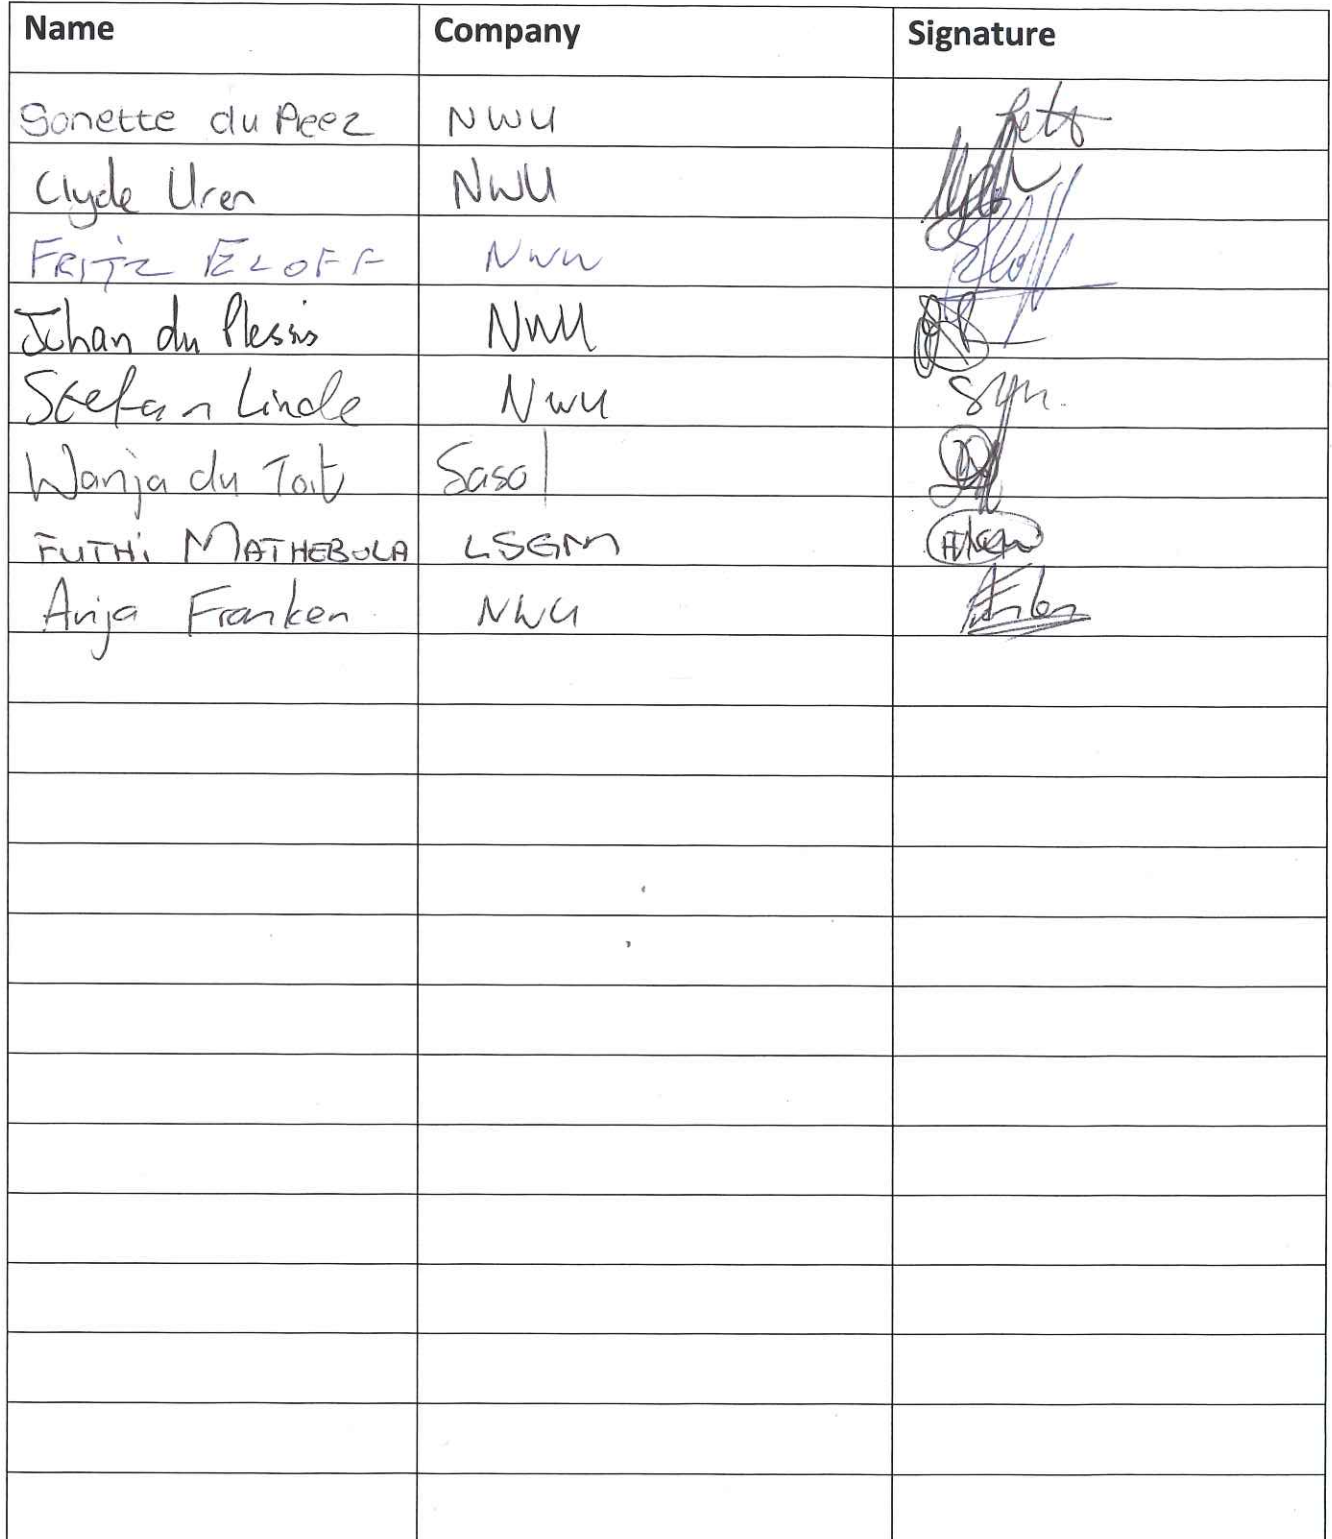 Name Company Signature
Sonette du Preez NWU
Clyde Uren NWU
FRITZ ELOFF NWU
Johan du Plessis NWU
Stefan Linde NWU
Wanja du Toit Sasol
FUTHI MATHEBULA LSGM
Anja Franken NWU